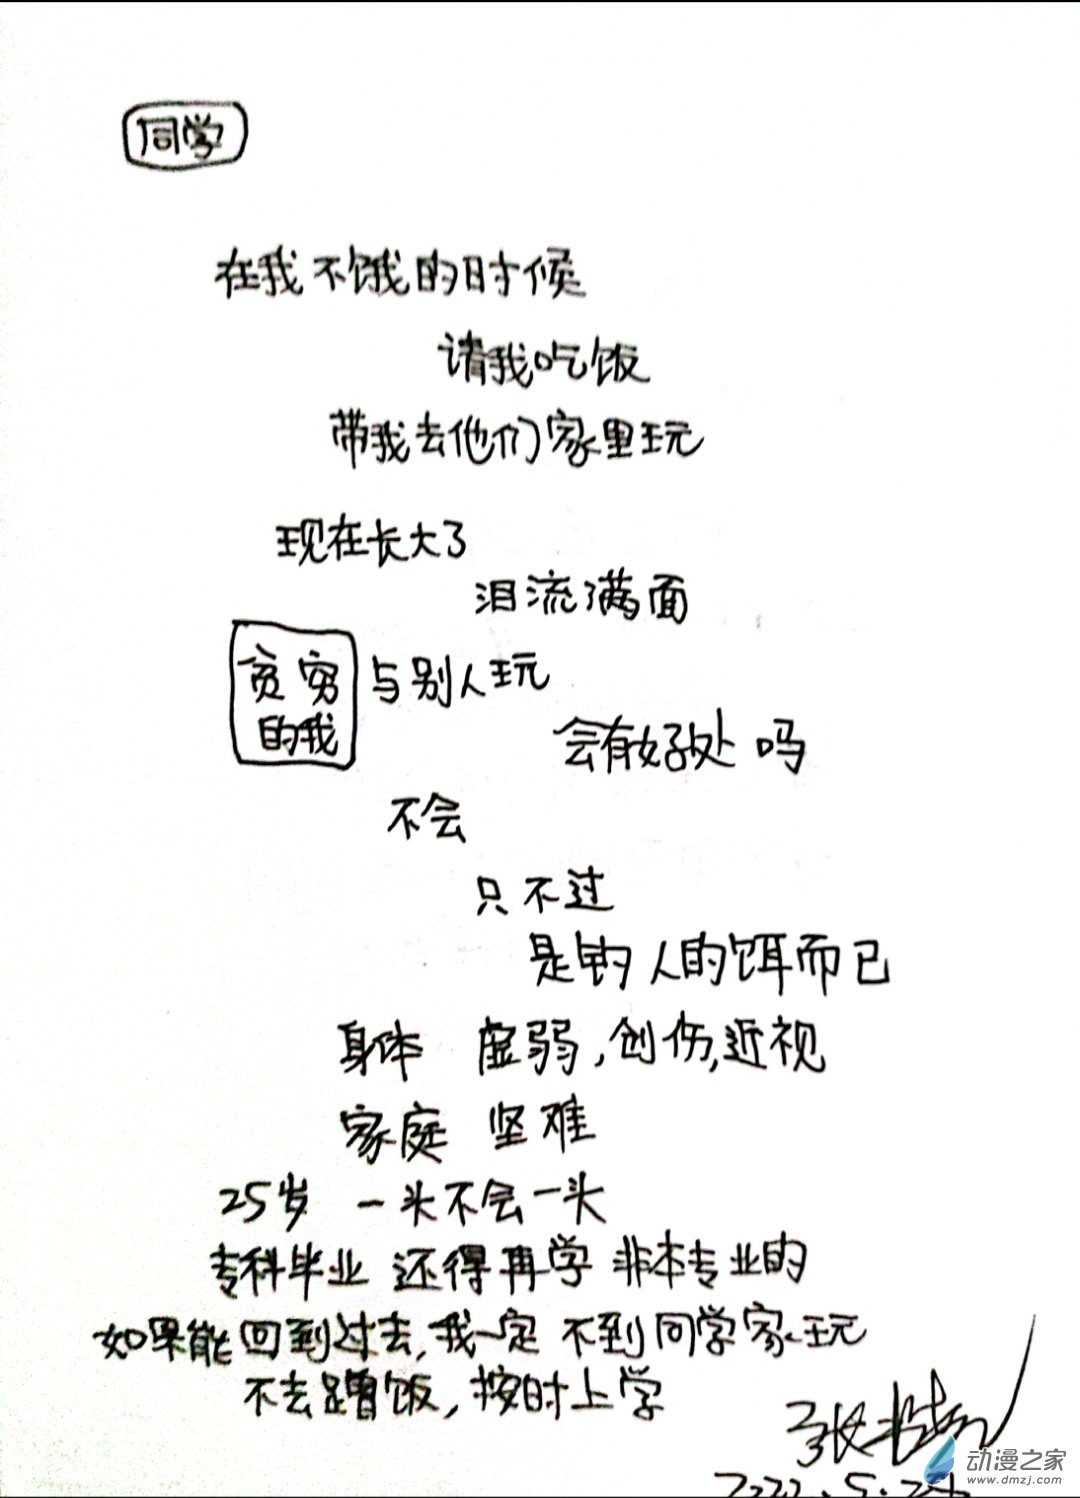 同学
在我不饿的时候
请我吃饭
带我去他们家里玩
现在长大了
泪流满面
贫穷的我 与别人玩
会有好处吗
不会
只不过
是钓人的饵而已
身体 虚弱,创伤,近视
家庭 坚难
25岁 一头不会一头
专科毕业 还得再学 非本专业的
如果能回到过去,我一定 不到同学家玩
不去蹭饭,按时上学
张
2022.5.24
动漫之家
www.dmzj.com